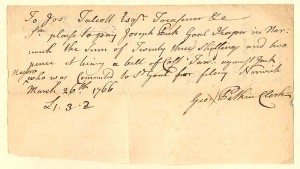 To Jos. Talcott Esqr. Treasurer &c
Sr. please to pay Joseph Peck Goal Keeper in Nor-
wich the Sum of Twenty three Shillings and two
pence it being a bill of Cost Tax. against Jack
Negro who was Commited to Sd. Goal for firing Norwich
March 26th. 1766
£1.3.2
Geo. Pitkin Clerk